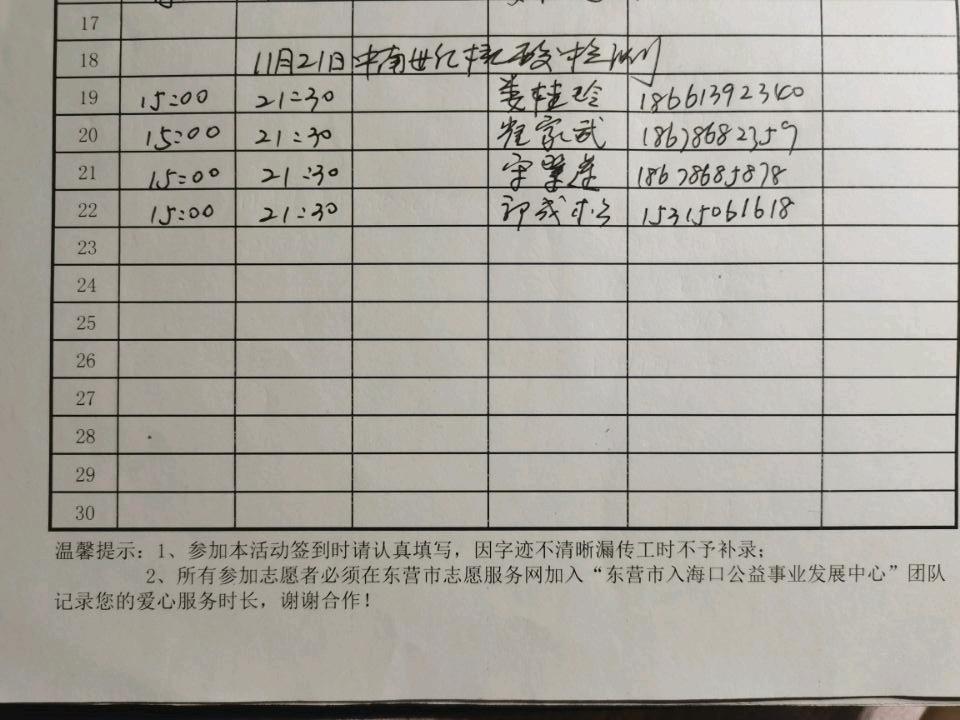 17
18 11月21日中南世纪核酸检测
19 15:00 21:30 娄桂玲 18661392340
20 15:00 21:30 崔家武 18678682359
21 15:00 21:30 18678685878
22 15:00 21:30 15315061618
23
24
25
26
27
28
29
30
温馨提示：1、参加本活动签到时请认真填写，因字迹不清晰漏传工时不予补录；
2、所有参加志愿者必须在东营市志愿服务网加入“东营市入海口公益事业发展中心”团队
记录您的爱心服务时长，谢谢合作！